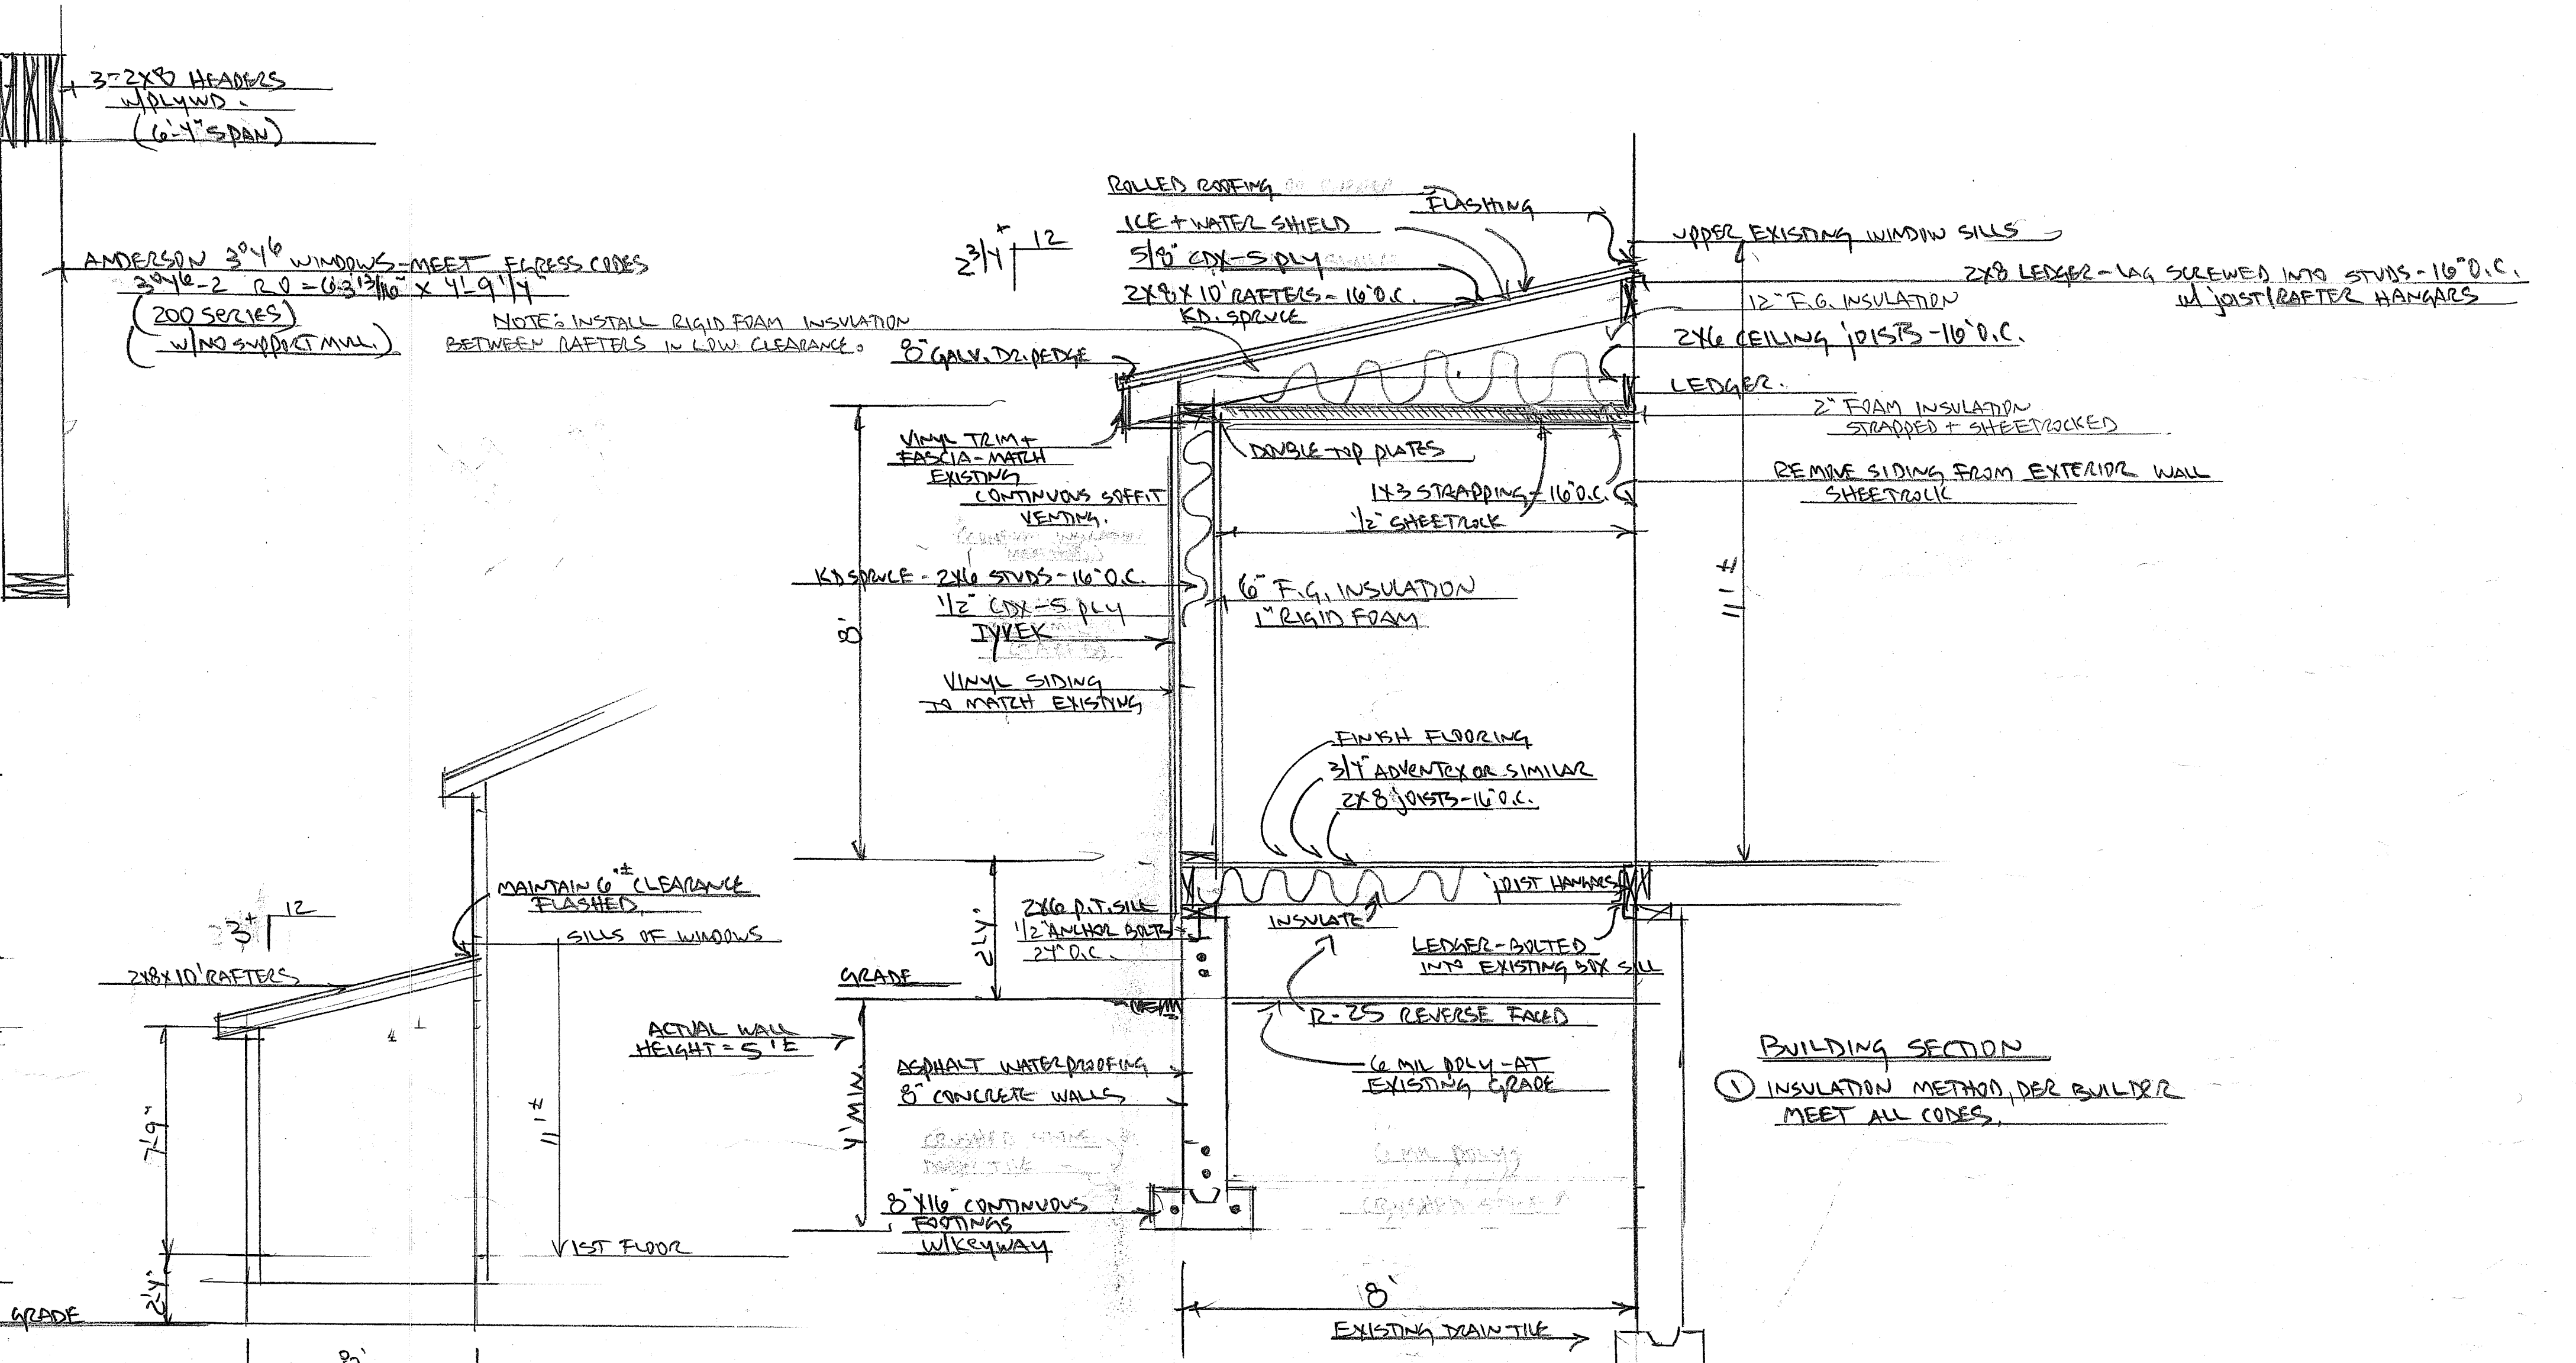 3-2X8 HEADERS
W/PLYWD.
(6'-4" SPAN)
ANDERSON 3⁰4⁶ WINDOWS-MEET EGRESS CODES
3⁰4⁶-2 RO = 6'-3 13/16" X 4'-9 1/4"
(200 SERIES)
(W/NO SUPPORT MULL.)
NOTE: INSTALL RIGID FOAM INSULATION
BETWEEN RAFTERS IN LOW CLEARANCE.
ROLLED ROOFING
FLASHING
ICE + WATER SHIELD
5/8" CDX-5 PLY
2X8X10' RAFTERS-16"O.C.
KD. SPRUCE
2 3/4+
12
8" GALV. DRIPEDGE
UPPER EXISTING WINDOW SILLS
2X8 LEDGER-LAG SCREWED INTO STUDS-16"O.C.
W/ JOIST/RAFTER HANGARS
12" F.G. INSULATION
2X6 CEILING JOISTS-16"O.C.
LEDGER.
2" FOAM INSULATION
STRAPPED + SHEETROCKED
REMOVE SIDING FROM EXTERIOR WALL
SHEETROCK
VINYL TRIM+
FASCIA-MATCH
EXISTING
CONTINUOUS SOFFIT
VENTING.
DOUBLE TOP PLATES
1X3 STRAPPING-16"O.C.
1/2" SHEETROCK
KD SPRUCE-2X6 STUDS-16"O.C.
1/2" CDX-5 PLY
TYVEK
VINYL SIDING
TO MATCH EXISTING
6" F.G. INSULATION
1" RIGID FOAM
8'
11'±
FINISH FLOORING
3/4" ADVENTEX OR SIMILAR
2X8 JOISTS-16"O.C.
JOIST HANGARS
INSULATE
LEDGER-BOLTED
INTO EXISTING BOX SILL
2X6 P.T. SILL
1/2" ANCHOR BOLTS
24"O.C.
2'-4"
GRADE
R-25 REVERSE FACED
6 MIL POLY-AT
EXISTING GRADE
ACTUAL WALL
HEIGHT = 5'±
4' MIN.
ASPHALT WATERPROOFING
8" CONCRETE WALLS
8"X16" CONTINUOUS
FOOTINGS
W/KEYWAY
8'
EXISTING DRAIN TILE
MAINTAIN 6"± CLEARANCE
FLASHED.
SILLS OF WINDOWS
3+
12
2X8X10' RAFTERS
7'-9"
11'±
1ST FLOOR
2'-4"
GRADE
8'
BUILDING SECTION
① INSULATION METHOD, PER BUILDER
MEET ALL CODES.